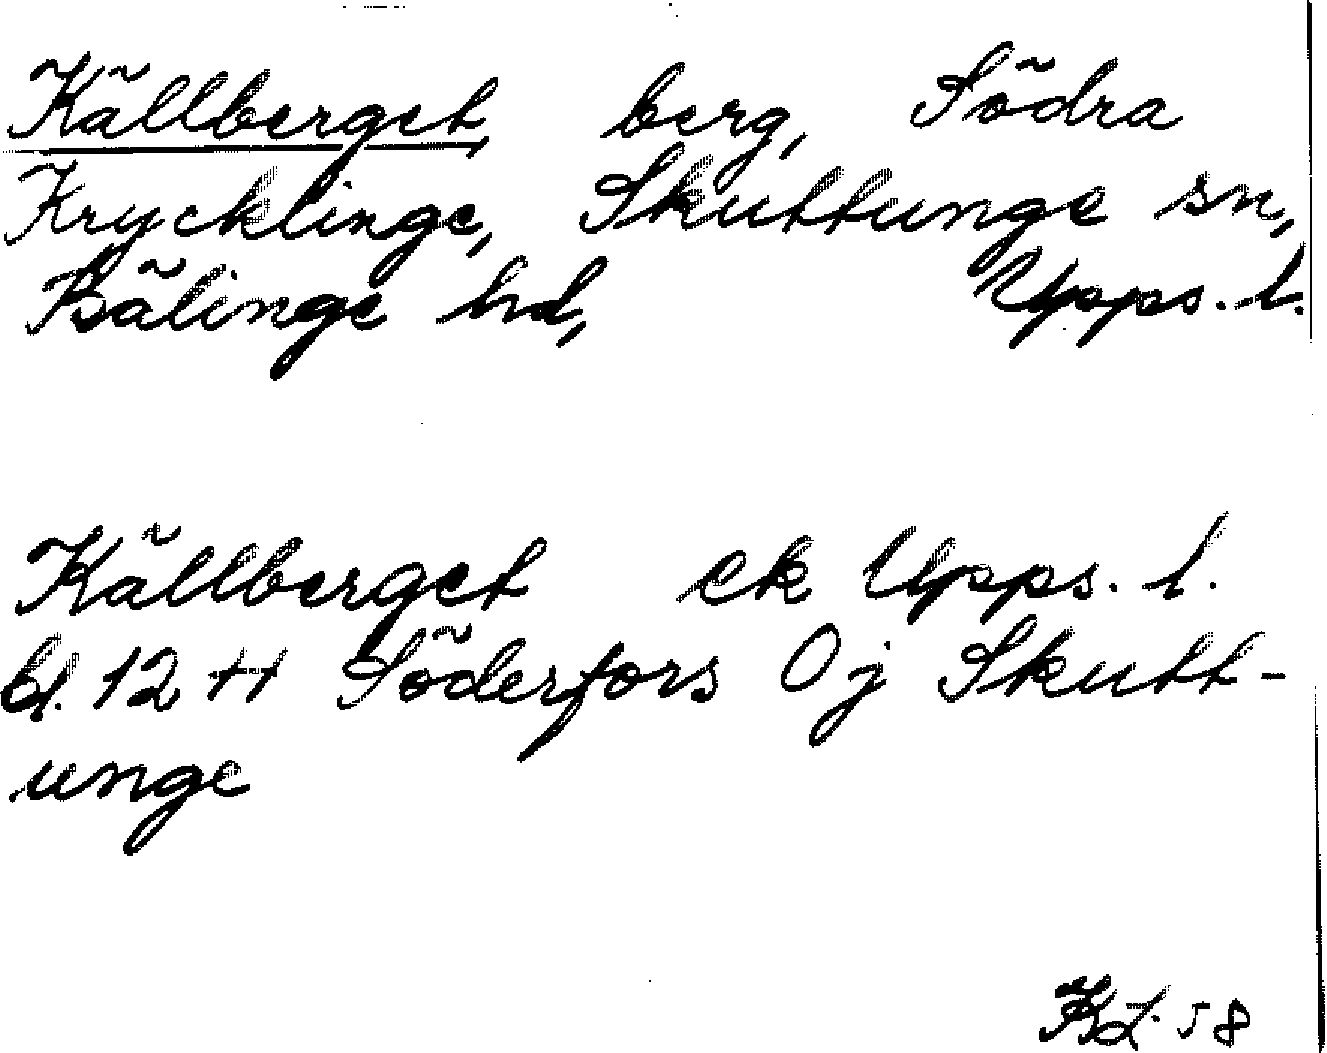 Källberget, berg, Södra
Krycklinge, Skuttunge sn,
Bälinge hd, Upps. l.
Källberget ek Upps. l.
bl. 12 H Söderfors Öj Skutt-
unge
KL 58